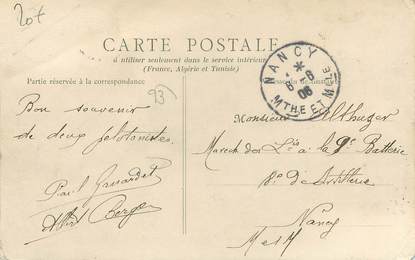 20f
CARTE POSTALE
à utiliser seulement dans le service intérieur
(France, Algérie et Tunisie)
Partie réservée à la correspondance
NANCY
6-6
06
MTHE ET MLE
93
Bon souvenir
de deux pelotonistes
Paul
Albert Berge
Monsieur Althuser
Marech des Lis à la 9e Batterie
8e d'Artillerie
Nancy
M et M